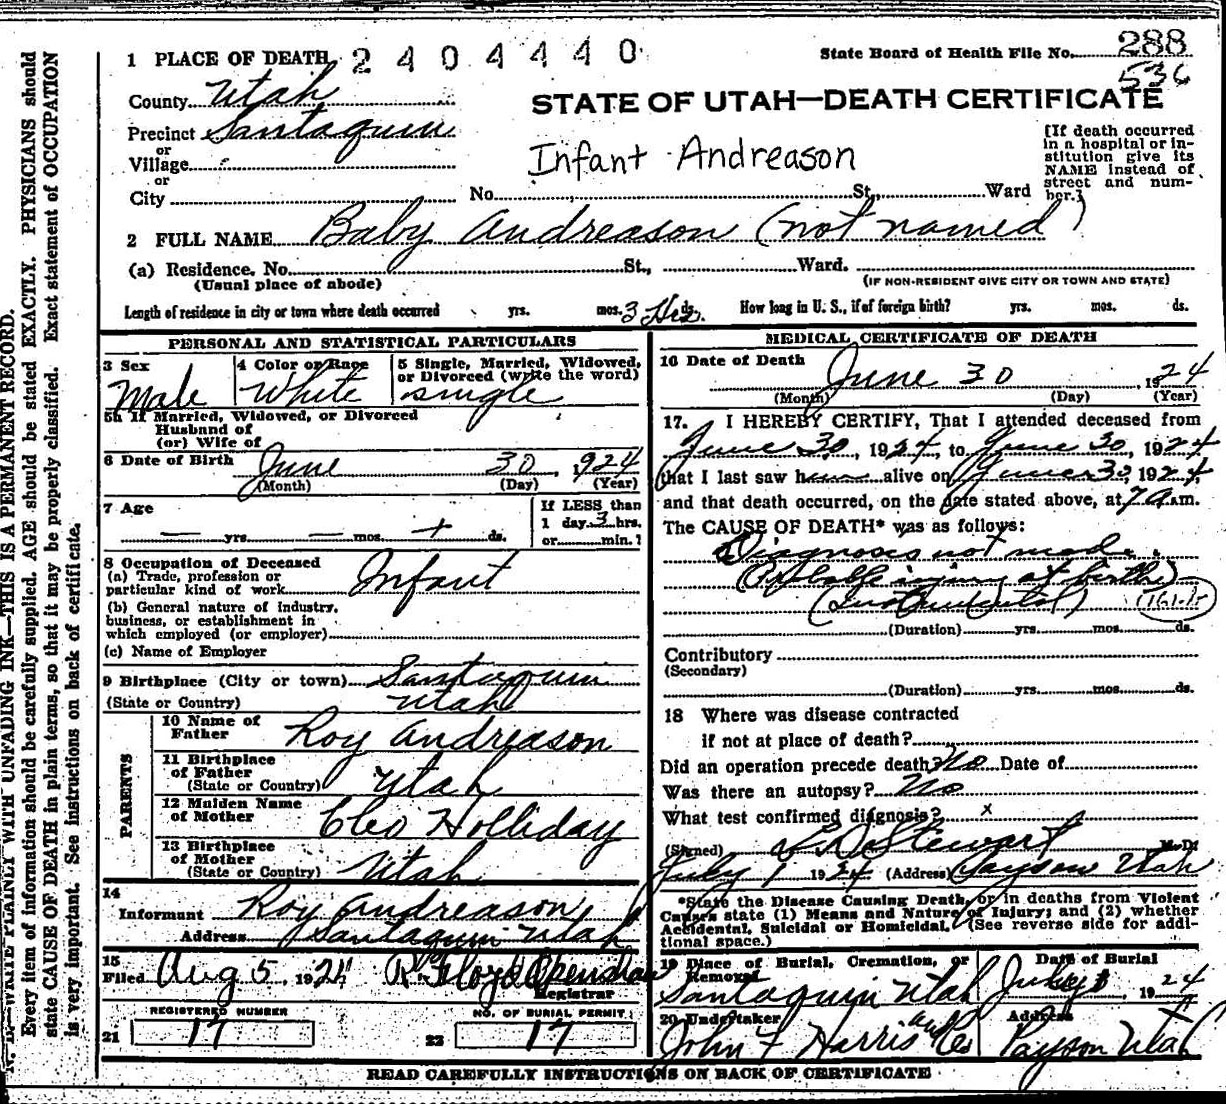 1 PLACE OF DEATH 2404440
State Board of Health File No. 288
536
County Utah
STATE OF UTAH—DEATH CERTIFICATE
Precinct Santaquin
or
Village
or
City
Infant Andreason
[If death occurred
in a hospital or in-
stitution give its
NAME instead of
street and num-
ber.]
No. St. Ward
2 FULL NAME Baby Andreason (not named)
(a) Residence. No. St., Ward.
(Usual place of abode)
(IF NON-RESIDENT GIVE CITY OR TOWN AND STATE)
Length of residence in city or town where death occurred yrs. mos. 3 Hrs. ds. How long in U. S., if of foreign birth? yrs. mos. ds.
PERSONAL AND STATISTICAL PARTICULARS
3 Sex
Male
4 Color or Race
White
5 Single, Married, Widowed,
or Divorced (write the word)
single
5a If Married, Widowed, or Divorced
Husband of
(or) Wife of
6 Date of Birth June 30, 924
(Month) (Day) (Year)
7 Age
— yrs. — mos. ds.
If LESS than
1 day 3 hrs.
or min.
8 Occupation of Deceased
(a) Trade, profession or
particular kind of work Infant
(b) General nature of industry,
business, or establishment in
which employed (or employer)
(c) Name of Employer
9 Birthplace (City or town) Santaquin
(State or Country) Utah
PARENTS
10 Name of
Father Roy Andreason
11 Birthplace
of Father
(State or Country) Utah
12 Maiden Name
of Mother Cleo Holliday
13 Birthplace
of Mother
(State or Country) Utah
14
Informant Roy Andreason
Address Santaquin Utah
15
Filed Aug 5, 1924
Registrar
REGISTERED NUMBER
21 17
NO. OF BURIAL PERMIT
22 17
MEDICAL CERTIFICATE OF DEATH
16 Date of Death
June 30, 1924
(Month) (Day) (Year)
17. I HEREBY CERTIFY, That I attended deceased from
June 30, 1924, to June 30, 1924
that I last saw h alive on June 30, 1924,
and that death occurred, on the date stated above, at 7 a.m.
The CAUSE OF DEATH* was as follows:
Diagnosis not made.
(Probable injury at birth)
(Duration) yrs. mos. ds.
Contributory
(Secondary)
(Duration) yrs. mos. ds.
18 Where was disease contracted
if not at place of death?
Did an operation precede death? No Date of
Was there an autopsy? No
What test confirmed diagnosis? x
(Signed) L. D. Stewart M. D.
July 1 1924 (Address) Payson Utah
*State the Disease Causing Death, or in deaths from Violent
Causes state (1) Means and Nature of Injury; and (2) whether
Accidental, Suicidal or Homicidal. (See reverse side for addi-
tional space.)
19 Place of Burial, Cremation, or
Removal
Santaquin Utah
Date of Burial
July 1 1924
20 Undertaker
John F Harris and Co
Address
Payson Utah
READ CAREFULLY INSTRUCTIONS ON BACK OF CERTIFICATE
N. B.—WRITE PLAINLY WITH UNFADING INK—THIS IS A PERMANENT RECORD.
Every item of information should be carefully supplied. AGE should be stated EXACTLY. PHYSICIANS should
state CAUSE OF DEATH in plain terms, so that it may be properly classified. Exact statement of OCCUPATION
is very important. See instructions on back of certificate.